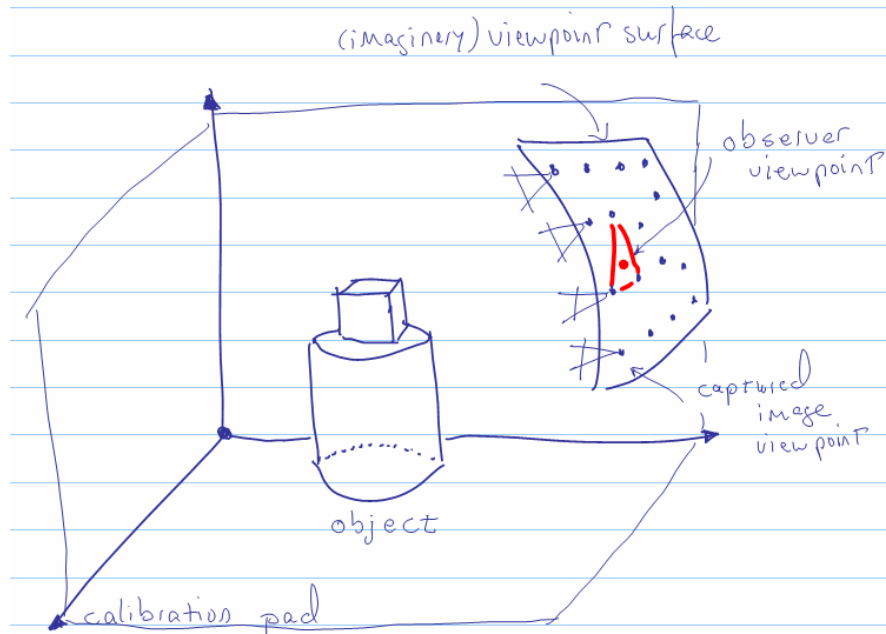 (imaginery) viewpoint surface
observer
viewpoint
captured
image
viewpoint
object
calibration pad